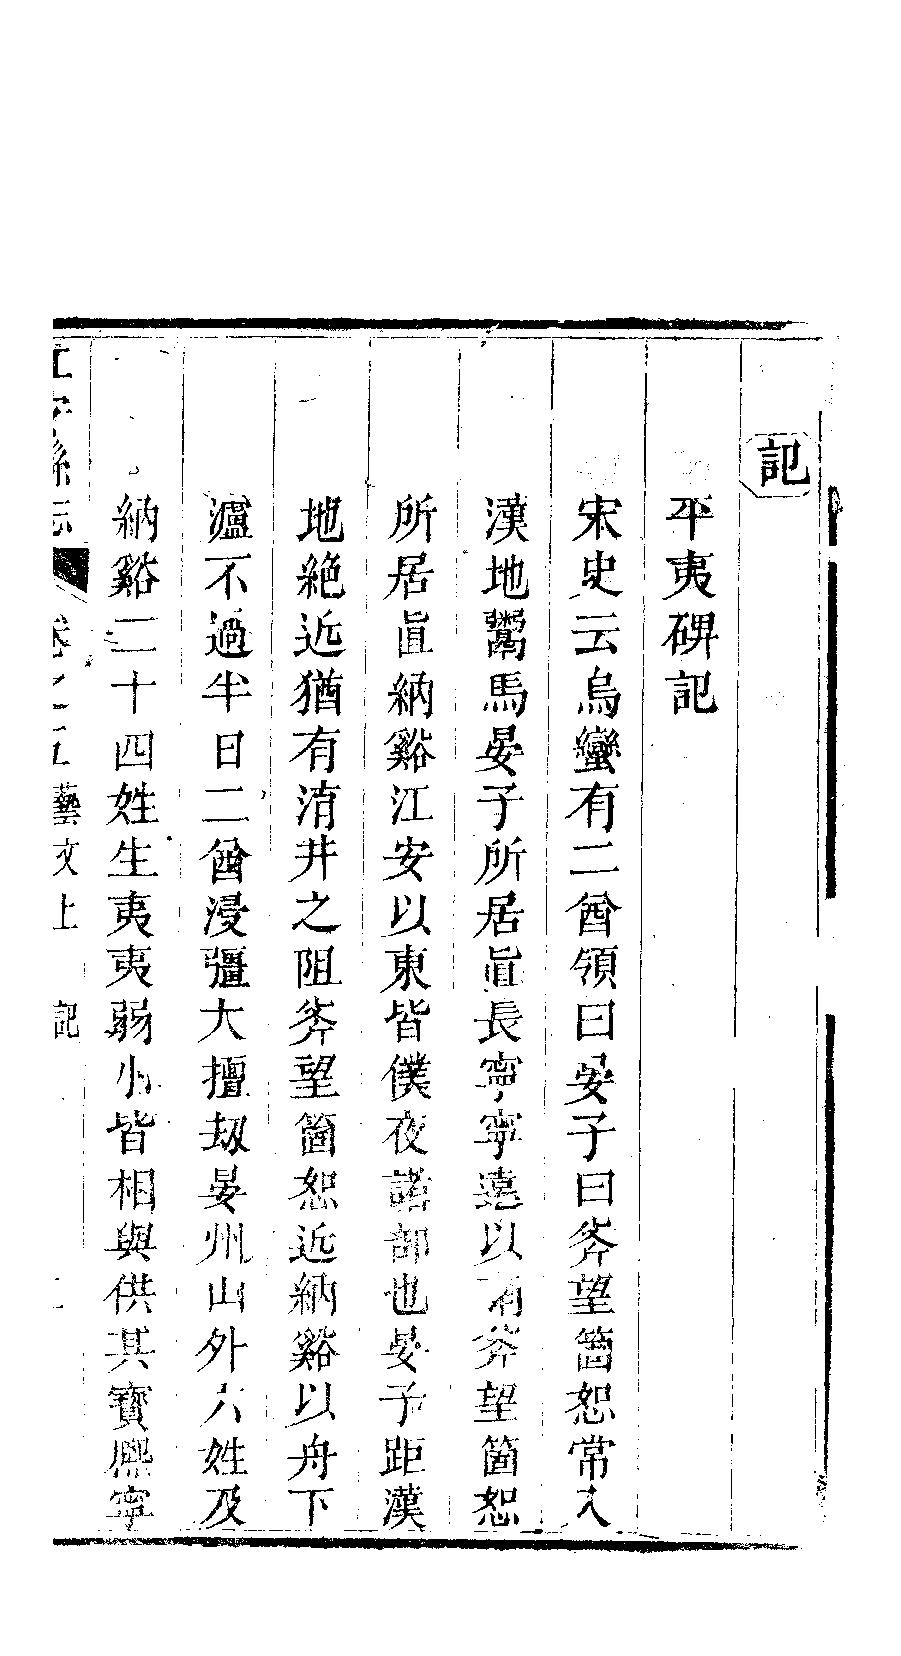 記
平夷碑記
宋史云烏蠻有二酋領曰晏子曰斧望箇恕常入
漢地鬻馬晏子所居直長寧寧遠以南斧望箇恕
所居直納谿江安以東皆僕夜諸部也晏子距漢
地絶近猶有淯井之阻斧望箇恕近納谿以舟下
瀘不過半日二酋浸彊大擅刼晏州山外六姓及
納谿二十四姓生夷夷弱小皆相與供其寳熈寧
江安縣志 卷之五 藝文上 記